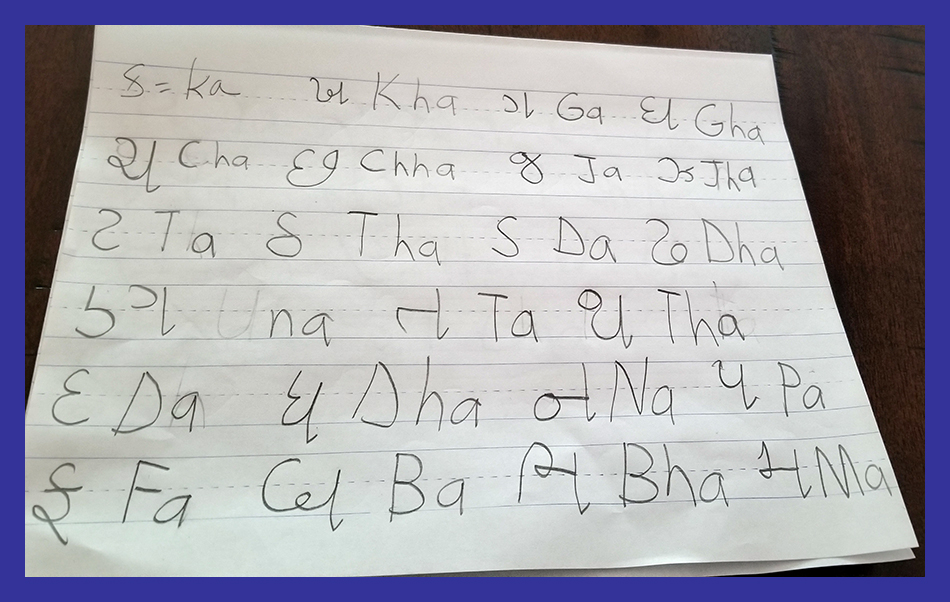 ક = ka ખ Kha ગ Ga ઘ Gha
ચ Cha છ Chha જ Ja ઝ Jha
ટ Ta ઠ Tha ડ Da ઢ Dha
ણ na ત Ta થ Tha
દ Da ધ Dha ન Na પ Pa
ફ Fa બ Ba ભ Bha મ Ma